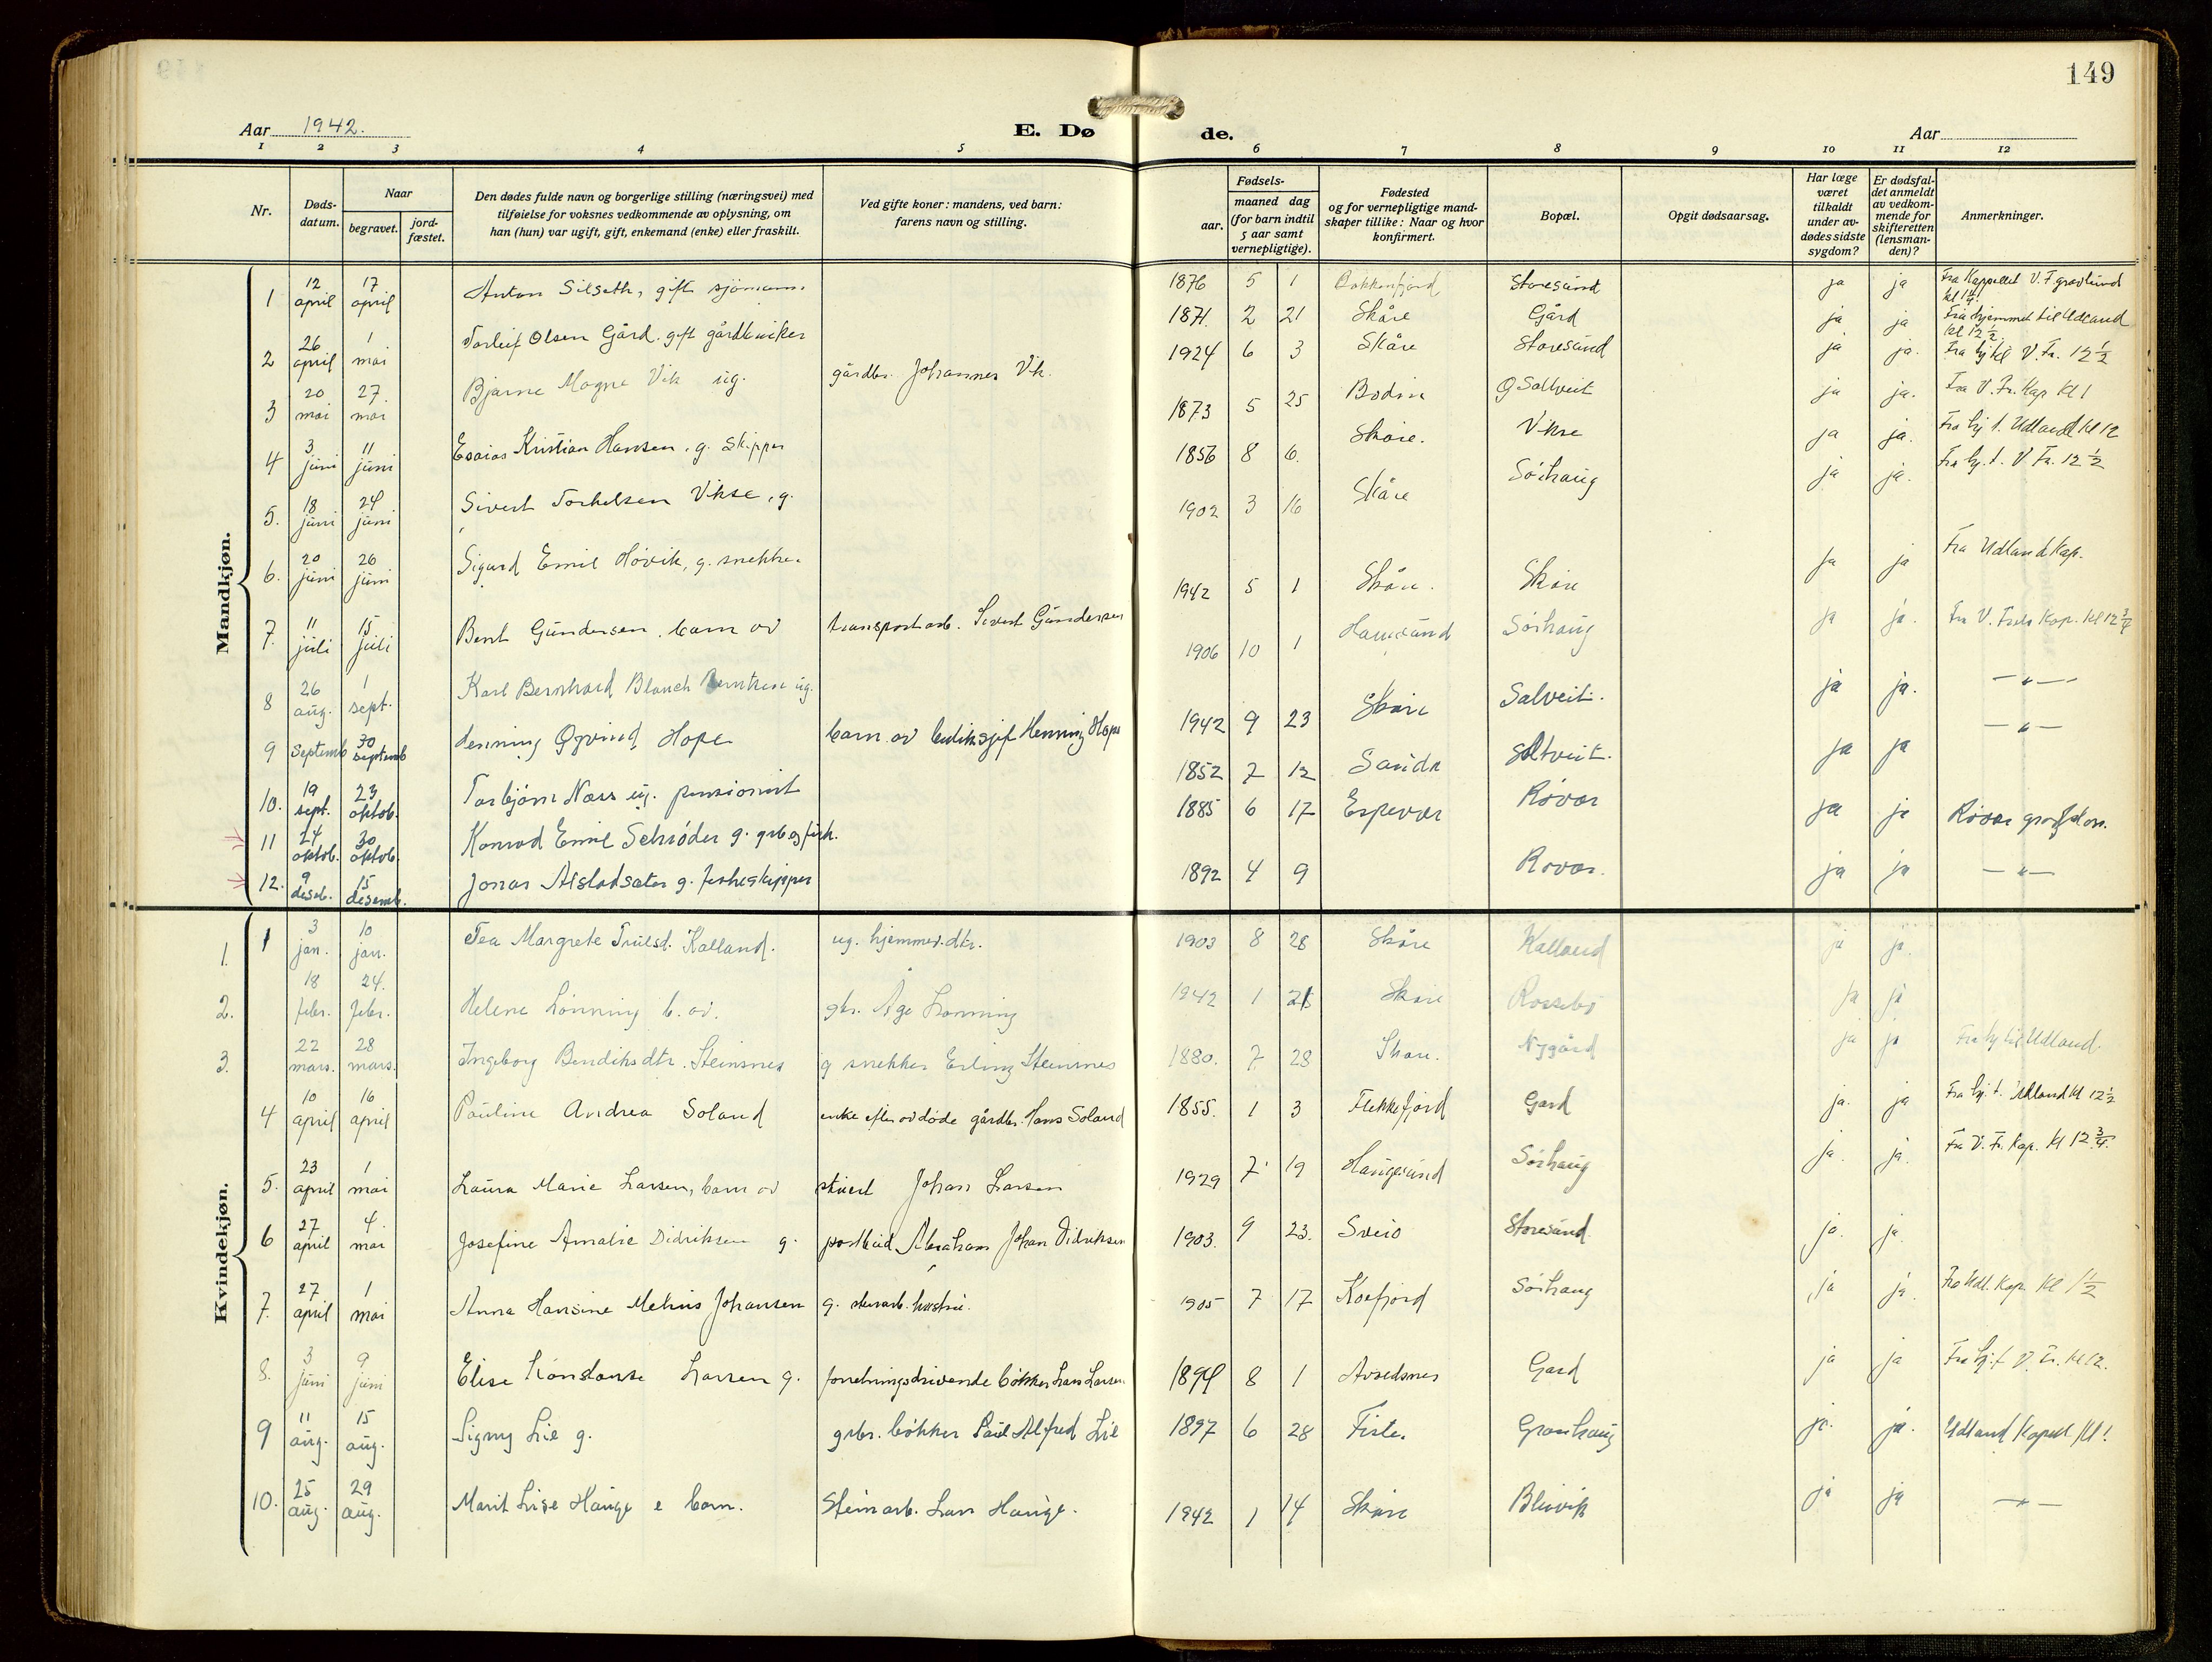 149
Aar 1942.
E. Dø de.
Aar
1 2 3 4 5 6 7 8 9 10 11 12
Nr.
Døds-
datum.
Naar
begravet.
jord-
fæstet.
Den dødes fulde navn og borgerlige stilling (næringsvei) med
tilføielse for voksnes vedkommende av oplysning, om
han (hun) var ugift, gift, enkemand (enke) eller fraskilt.
Ved gifte koner: mandens, ved barn:
farens navn og stilling.
Fødsels-
aar.
maaned dag
(for barn indtil
5 aar samt
vernepligtige).
Fødested
og for vernepligtige mand-
skaper tillike: Naar og hvor
konfirmert.
Bopæl.
Opgit dødsaarsag.
Har læge
været
tilkaldt
under av-
dødes sidste
sygdom?
Er dødsfal-
det anmeldt
av vedkom-
mende for
skifteretten
(lensman-
den)?
Anmerkninger.
Mandkjøn.
1 12 april 17 april Anton Silseth, gift sjömann. 1876 5 1 Bokkenfjord Storesund ja ja Fra Kappellet V. F. gravlund
2 26 april 1 mai Torleif Olsen Gård. gift gårdbruker 1871. 2 21 Skåre Gård ja ja Fra hjemmet til Udland kl 12 ½
3 20 mai 27. mai Bjarne Magne Vik ug. gårdbr. Johannes Vik. 1924 6 3 Skåre Storesund ja ja. V. Fr. 12 ½
4 3. juni 11 juni Esaias Kristian Hansen. g. Skipper 1873 5 25 Bodin Saltveit ja ja. Fra V. Fr. Kap Kl 1
5. 18 juni 24 juni Sivert Torkelsen Vikse, g. 1856 8 6. Skåre. Vikse ja ja. Fra hj t. Udland Kl 12
6. 20 juni 26 juni Sigurd Emil Hövik, g. snekker 1902 3 16 Skåre Sörhaug ja ja. Fra hj. t. V Fr. 12 ½
7. 11 juli 15 juli Bent Gundersen. barn av transportarb. Sivert Gundersen 1942 5 1 Skåre. Skåre ja ja Fra Udland Kap.
8 26 aug. 1 sept. Karl Bernhard Blanch Berntsen ug. 1906 10 1 Haugesund Sörhaug ja ja. Fra V. Freds Kap. Kl 12 ¾
9 Septemb 30 septemb Henning Öyvind Hope barn av Henning Hope 1942 9 23 Skåre Salveit. ja ja. —"—
10. 19 sept. 23 oktob. Torbjörn Næss ug. pensionist 1852 7 12 Sauda Saltveit. ja ja —"—
11 24 oktob. 30 oktob. Konrad Emil Schröder g. grb og fisk. 1885 6 17 Espevær Rövær ja ja Rövær gravplass.
12. 9 desb. 15 desemb. Jonas Alsladsæter g. fiskeskipper 1892 4 9 Rövær. ja ja —"—
Kvindekjøn.
1. 1 3 jan. 10 jan. Tea Margrete Trulsd. Kalland. ug. hjemmev. dtr. 1903 8 28 Skåre Kalland ja ja.
2. 18 febr. 24. febr. Helene Lönning b. av. gbr. Åge Lönning 1942 1 21 Skåre Rossebö ja ja
3. 22 mars. 28 mars. Ingeborg Bendiksdtr. Steinsnes g snekker Erling Steinsnes 1880. 7 28 Skåre. Nygård ja ja Fra hj til Udland.
4 10 april 16 april Pauline Andrea Soland enke efter avdöde gårdbr. Hans Soland 1855. 1 3 Flekkefjord Gard ja. ja Fra hj. t. Udland Kl 12 ½
5. 23 april 1 mai Laura Marie Larsen, barn av stuert Johan Larsen 1929 7 19 Haugesund Sörhaug ja. ja. Fra V. Fr. Kap. Kl 12 ¾.
6 27 april 4. mai Josefine Amalie Didriksen g. postbud Abraham Johan Didriksen 1903. 9 23. Sveio Storesund. ja. ja.
7. 27 april 1 mai Anna Hansine Melius Johansen g. stenarb. hustru. 1905 7 17 Kåfjord Sörhaug ja ja. Fra Udl. Kap. Kl 1 ½
8. 3 juni 9 juni Elise Konstanse Larsen g. forretningsdrivende bökker Lars Larsen 1894 8 1 Avaldsnes Gard ja ja Fra hj. t V. Fr. Kl 12.
9 11 aug. 15 aug. Signy Lie g. grbr. bökker Paul Alfred Lie 1897 6 28 Fister Granhaug ja. ja. Udland Kapell Kl 1
10. 25 aug. 29 aug. Marit Lise Hauge e barn. Steinarb. Lars Hauge. 1942 1 14 Skåre Blievik ja ja —"—